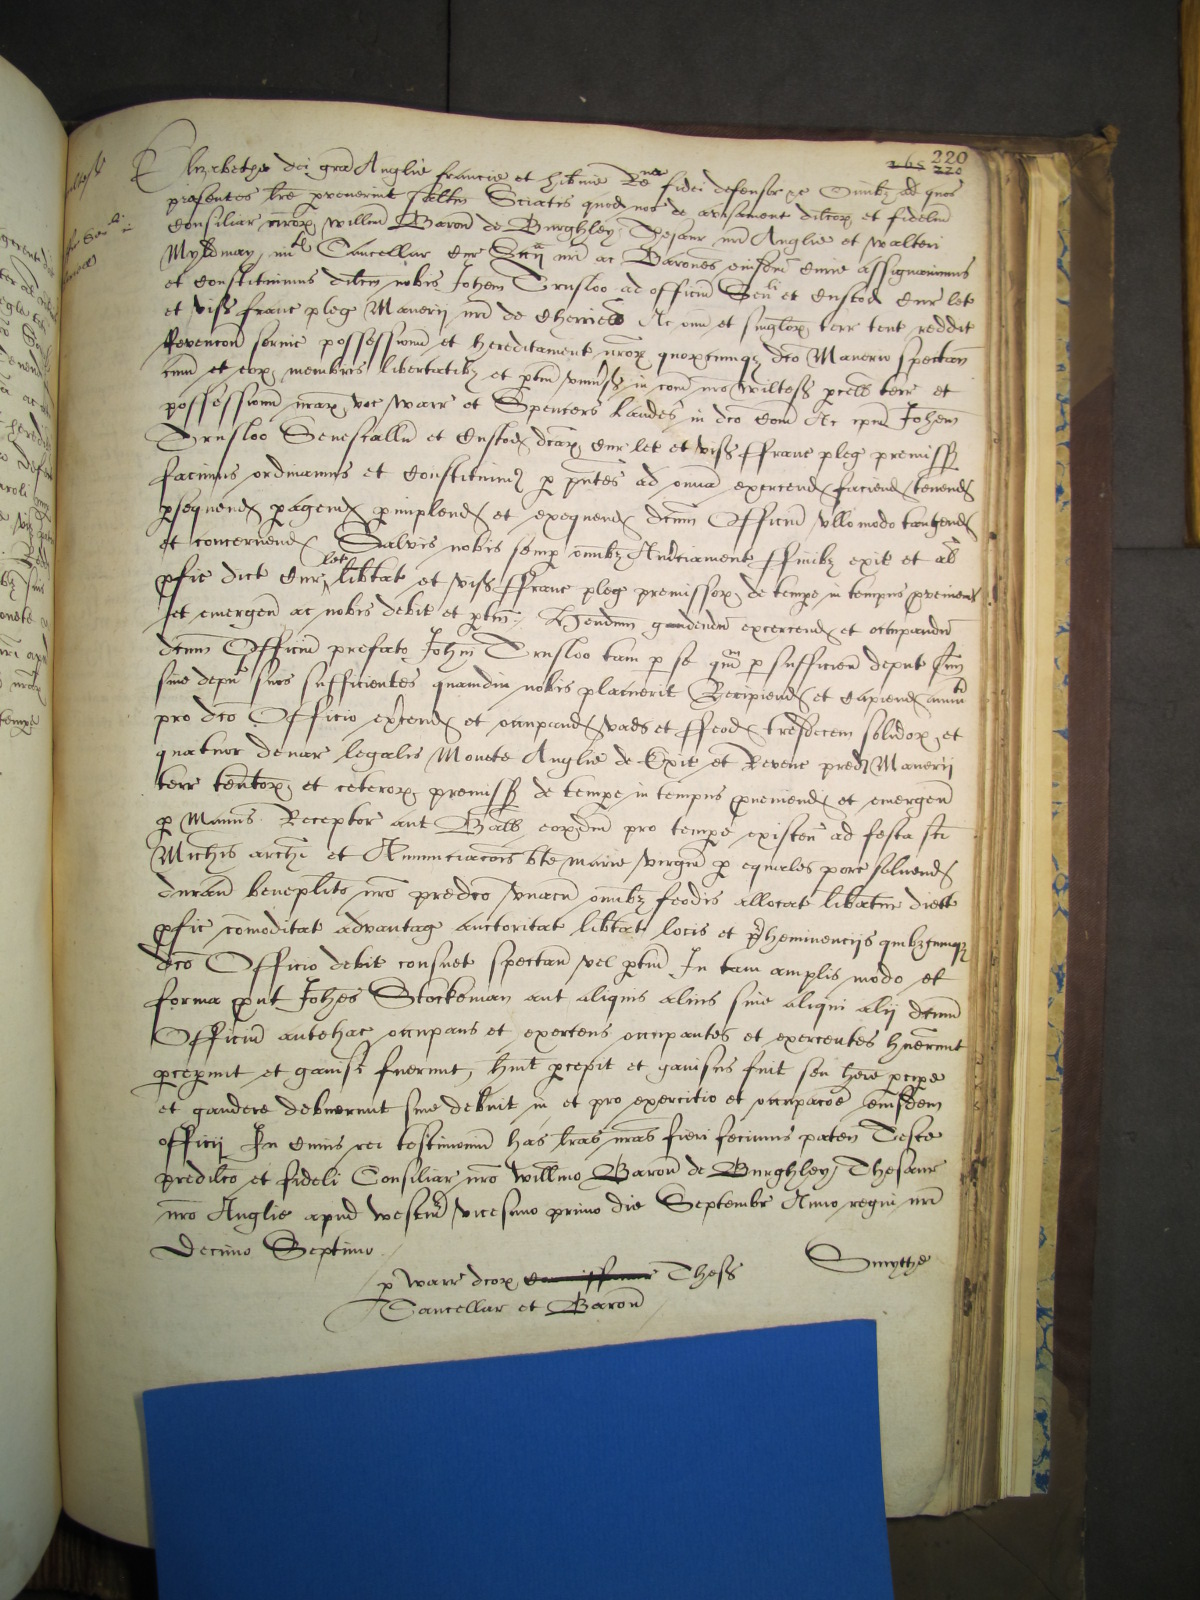 220
Elizabethe dei gra Anglie Francie et Hibnie Rena fidei defensor &c Omibz ad quos
presentes lre pvenerint saltm Sciatis quod nos de avisament dilcox et fidelm
Consiliar nrorx Willmi Baron de Burghley Thesaur nri Anglie et Walteri
Myldmay militis Cancellar Cur Sccij nri ac Barones eiusdem Curie assignavimus
et constituimus dilcm nobis Johem Trusloo ad officiu Senli et Custod Cur let
et vis franc pleg Manerij nri de Ac oim et singlorx terr tent reddit
Revencon servic possessionu et hereditament nrorx quorxcumqz dco Manerio spectan
cum et eorx membris libertatibz et ptin univsis in com nro Wiltes pcell terr et
possessionu nrarx voc Warr et Spencers landes in dco com Ac ipm Johem
Trusloo Senescallu et Custod dcarx Cur let et vis ffranc pleg premiss
facimus ordinamus et constituimus p pntes ad omia exercend faciend tenend
psequend pagend pimplend et exequend dcum Officiu ullo modo tangend
et concernend Salvis nobis semp omibz Amciament ffinibz exit et al
pfic dict Cur let libtat et vis ffranc pleg premissorx de tempe in tempus pveniend
et emergen ac nobis debit et ptin Hendum gaudendu excercend et occupandu
dcum Officiu prefato Johi Trusloo tam p se qm p sufficien deput suu
sive deput suos sufficientes quamdiu nobis placuerit Recipiend et capiend annti
pro dco Officio excend et occupand vad et ffeod tresdecem solidorx et
quatuor denar legalis Monete Anglie de Exit et Revenc pred Manerij
terr tentorx et ceterorx premiss de tempe in tempus pveniend et emergen
p Manus Receptor aut Ball eorxdem pro tempe existen ad festa sci
Michis archi et Annunciacois bte marie virgin p equales porc solvend
duran beneplito nro predco unacu omibz feodis allocat libatur diett
pfic comoditat advantag auctoritat libtat locis et pheminencijs quibzcumqz
dco Officio debit consuet spectan vel ptin In tam amplis modo et
forma put Johes Stockman aut aliquis alius sive aliqui alij dcum
Officiu antehac occupans et exercens occupantes et exercentes huerunt
pceperunt et gavisi fuerunt, huit pcepit et gavisus fuit seu here pcipe
et gaudere debuerunt sive debuit in et pro exercitio et occupacoe eiusdem
officij In cuius rei testimoniu has lras nras fieri fecimus paten Teste
predilco et fideli Consiliar nro Willmo Baron de Burghley Thesaur
nro Anglie apud Westm vicesimo primo die Septembr Anno regni nri
Decimo Septimo
Smythe
p Warr dcorx Thes
Cancellar et Baron